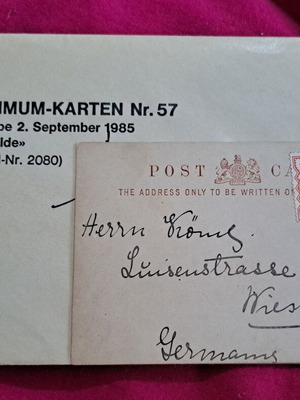 IMUM-KARTEN Nr. 57
be 2. September 1985
lde»
l-Nr. 2080)
POST CA
THE ADDRESS ONLY TO BE WRITTEN O
Herrn
Luisenstrasse
Wies
Germany